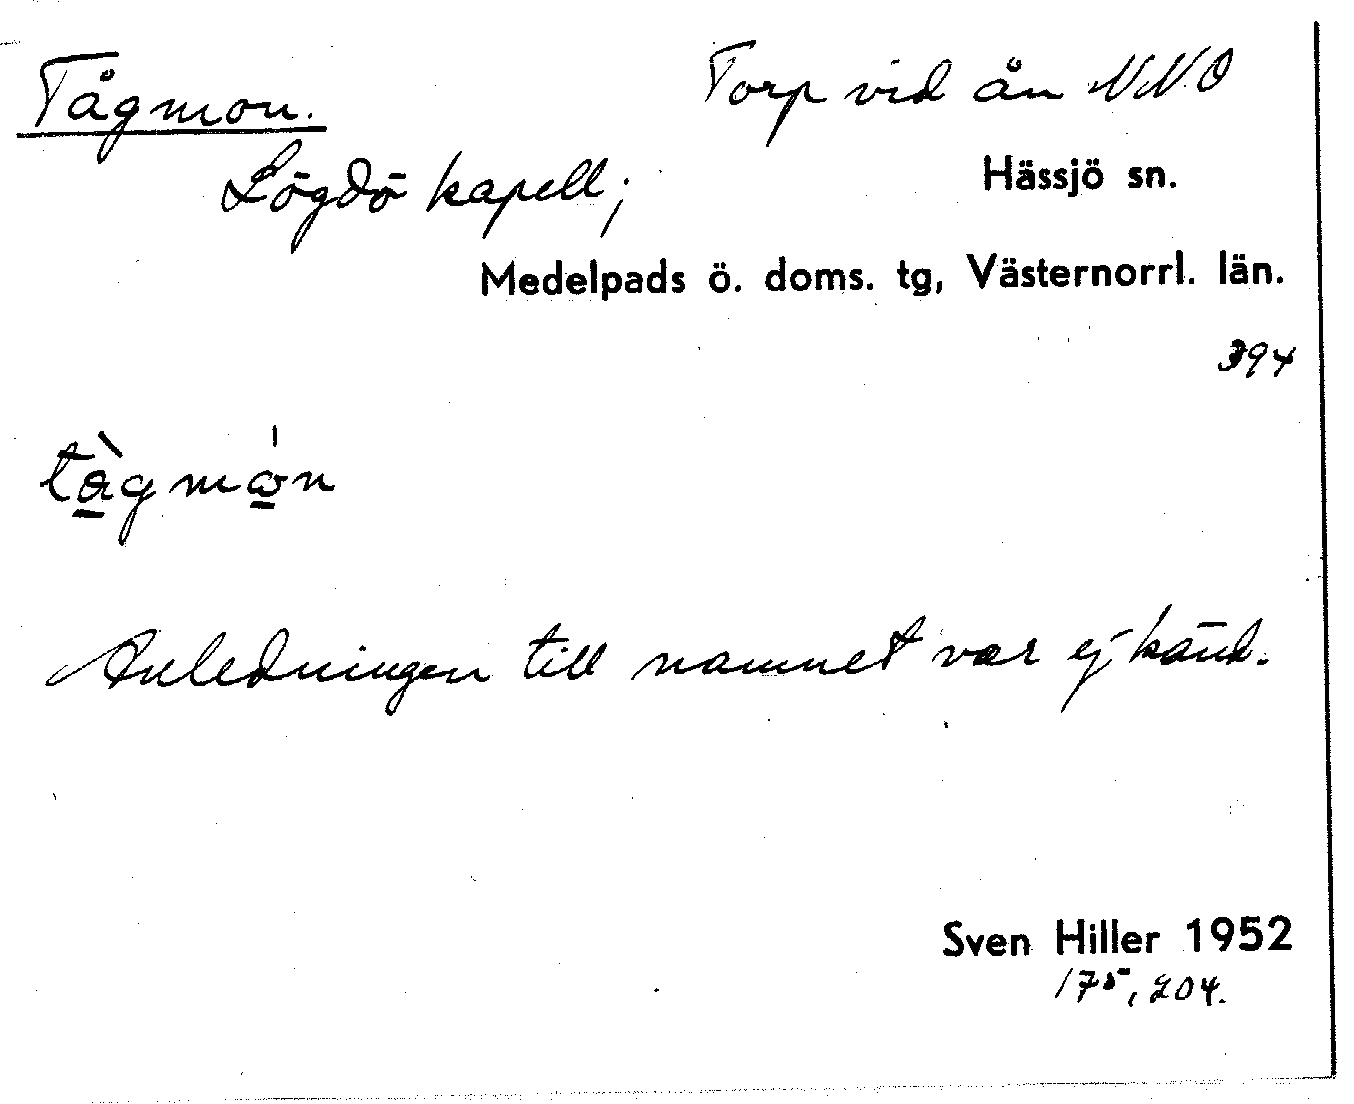 Tågmon. Torp vid ån NNO
Lögdö kapell; Hässjö sn.
Medelpads ö. doms. tg, Västernorrl. län.
394
Anledningen till namnet var ej känd.
Sven Hiller 1952
175, 204.